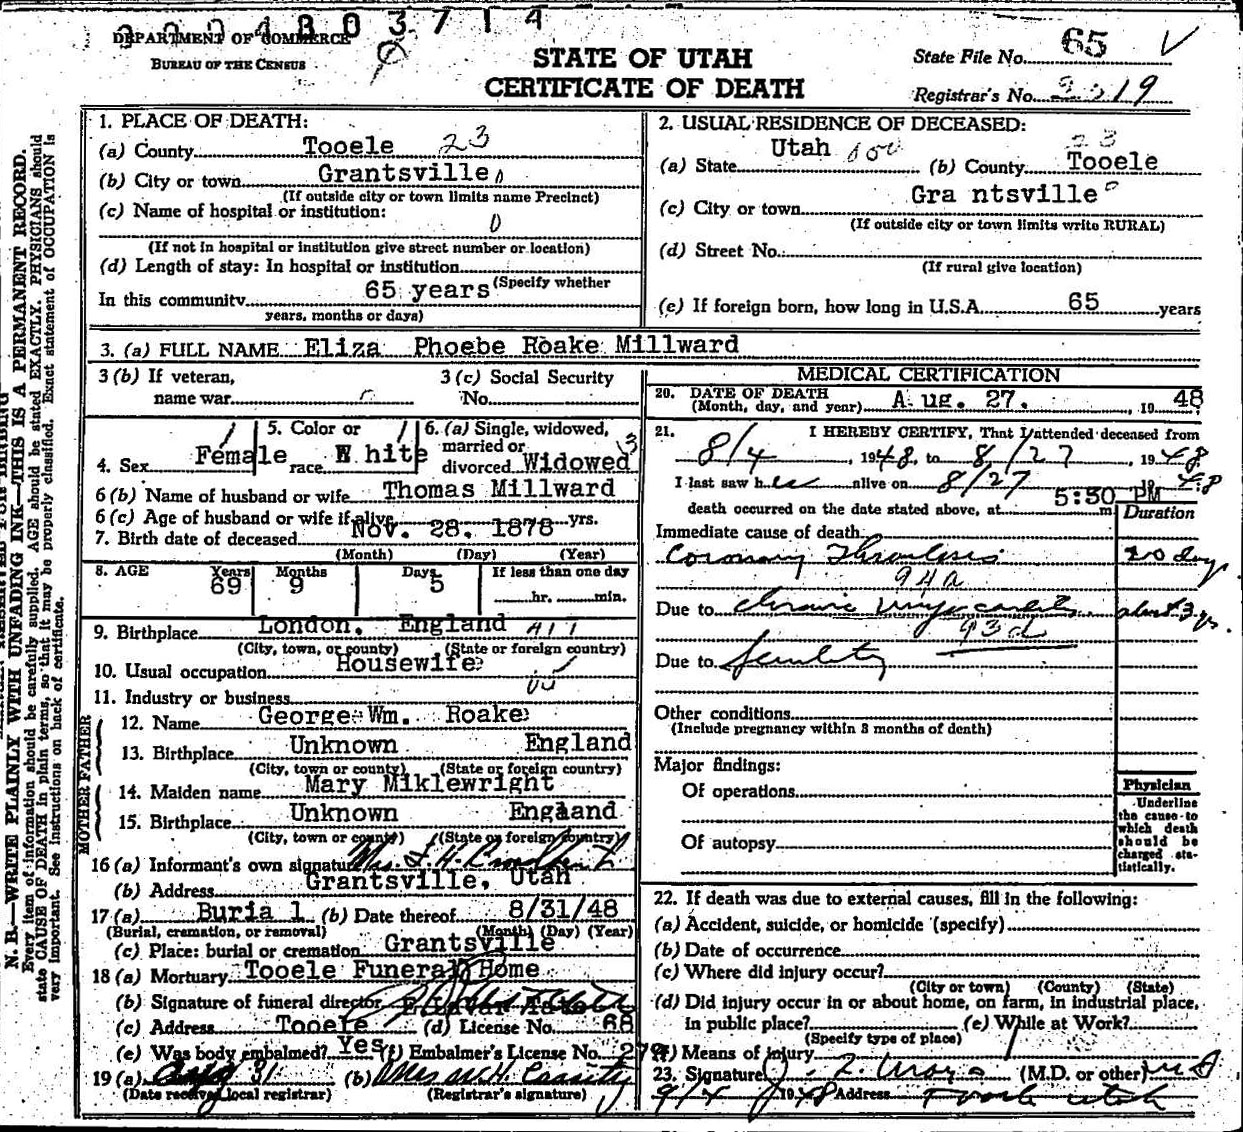 DEPARTMENT OF COMMERCE
BUREAU OF THE CENSUS
STATE OF UTAH
CERTIFICATE OF DEATH
State File No. 65
Registrar's No. 19
N. B.—WRITE PLAINLY WITH UNFADING INK—THIS IS A PERMANENT RECORD.
Every item of information should be carefully supplied. AGE should be stated EXACTLY. PHYSICIANS should
state CAUSE OF DEATH in plain terms, so that it may be properly classified. Exact statement of OCCUPATION is
very important. See instructions on back of certificate.
1. PLACE OF DEATH:
(a) County Tooele 23
(b) City or town Grantsville
(If outside city or town limits name Precinct)
(c) Name of hospital or institution:
0
(If not in hospital or institution give street number or location)
(d) Length of stay: In hospital or institution
(Specify whether
In this community 65 years
years, months or days)
2. USUAL RESIDENCE OF DECEASED:
(a) State Utah (b) County Tooele 23
(c) City or town Gra ntsville
(If outside city or town limits write RURAL)
(d) Street No.
(If rural give location)
(e) If foreign born, how long in U.S.A. 65 years
3. (a) FULL NAME Eliza Phoebe Roake Millward
3 (b) If veteran,
name war
3 (c) Social Security
No.
4. Sex Female
5. Color or
race W hite
6. (a) Single, widowed,
married or
divorced Widowed 3
6 (b) Name of husband or wife Thomas Millward
6 (c) Age of husband or wife if alive yrs.
7. Birth date of deceased Nov. 28, 1878
(Month) (Day) (Year)
8. AGE Years 69 Months 9 Days 5 If less than one day
hr. min.
9. Birthplace London, England
(City, town, or county) (State or foreign country)
10. Usual occupation Housewife
11. Industry or business
FATHER
12. Name George Wm. Roake
13. Birthplace Unknown England
(City, town or county) (State or foreign country)
MOTHER
14. Maiden name Mary Miklewright
15. Birthplace Unknown England
(City, town or county) (State or foreign country)
16 (a) Informant's own signature Mrs.
(b) Address Grantsville, Utah
17 (a) Buria l (b) Date thereof 8/31/48
(Burial, cremation, or removal) (Month) (Day) (Year)
(c) Place: burial or cremation Grantsville
18 (a) Mortuary Tooele Funeral Home
(b) Signature of funeral director
(c) Address Tooele (d) License No. 68
(e) Was body embalmed? Yes (f) Embalmer's License No. 279
19 (a) Aug 31 (b) Mrs W.H. Cassity
(Date received local registrar) (Registrar's signature)
MEDICAL CERTIFICATION
20. DATE OF DEATH
(Month, day, and year) A ug. 27, , 19 48
21. I HEREBY CERTIFY, That I attended deceased from
8/4, 1948, to 8/27, 1948
I last saw her alive on 8/27 1948
death occurred on the date stated above, at 5:30 PM m
Duration
Immediate cause of death
Coronary Thrombosis 20 days
94a
Due to chronic myocarditis about 3 yrs.
93d
Due to
Other conditions
(Include pregnancy within 3 months of death)
Major findings:
Of operations
Of autopsy
Physician
Underline
the cause to
which death
should be
charged sta-
tistically.
22. If death was due to external causes, fill in the following:
(a) Accident, suicide, or homicide (specify)
(b) Date of occurrence
(c) Where did injury occur?
(City or town) (County) (State)
(d) Did injury occur in or about home, on farm, in industrial place,
in public place? (e) While at Work?
(Specify type of place)
(f) Means of injury
23. Signature (M.D. or other) M D
9/4 1948 Address Tooele Utah